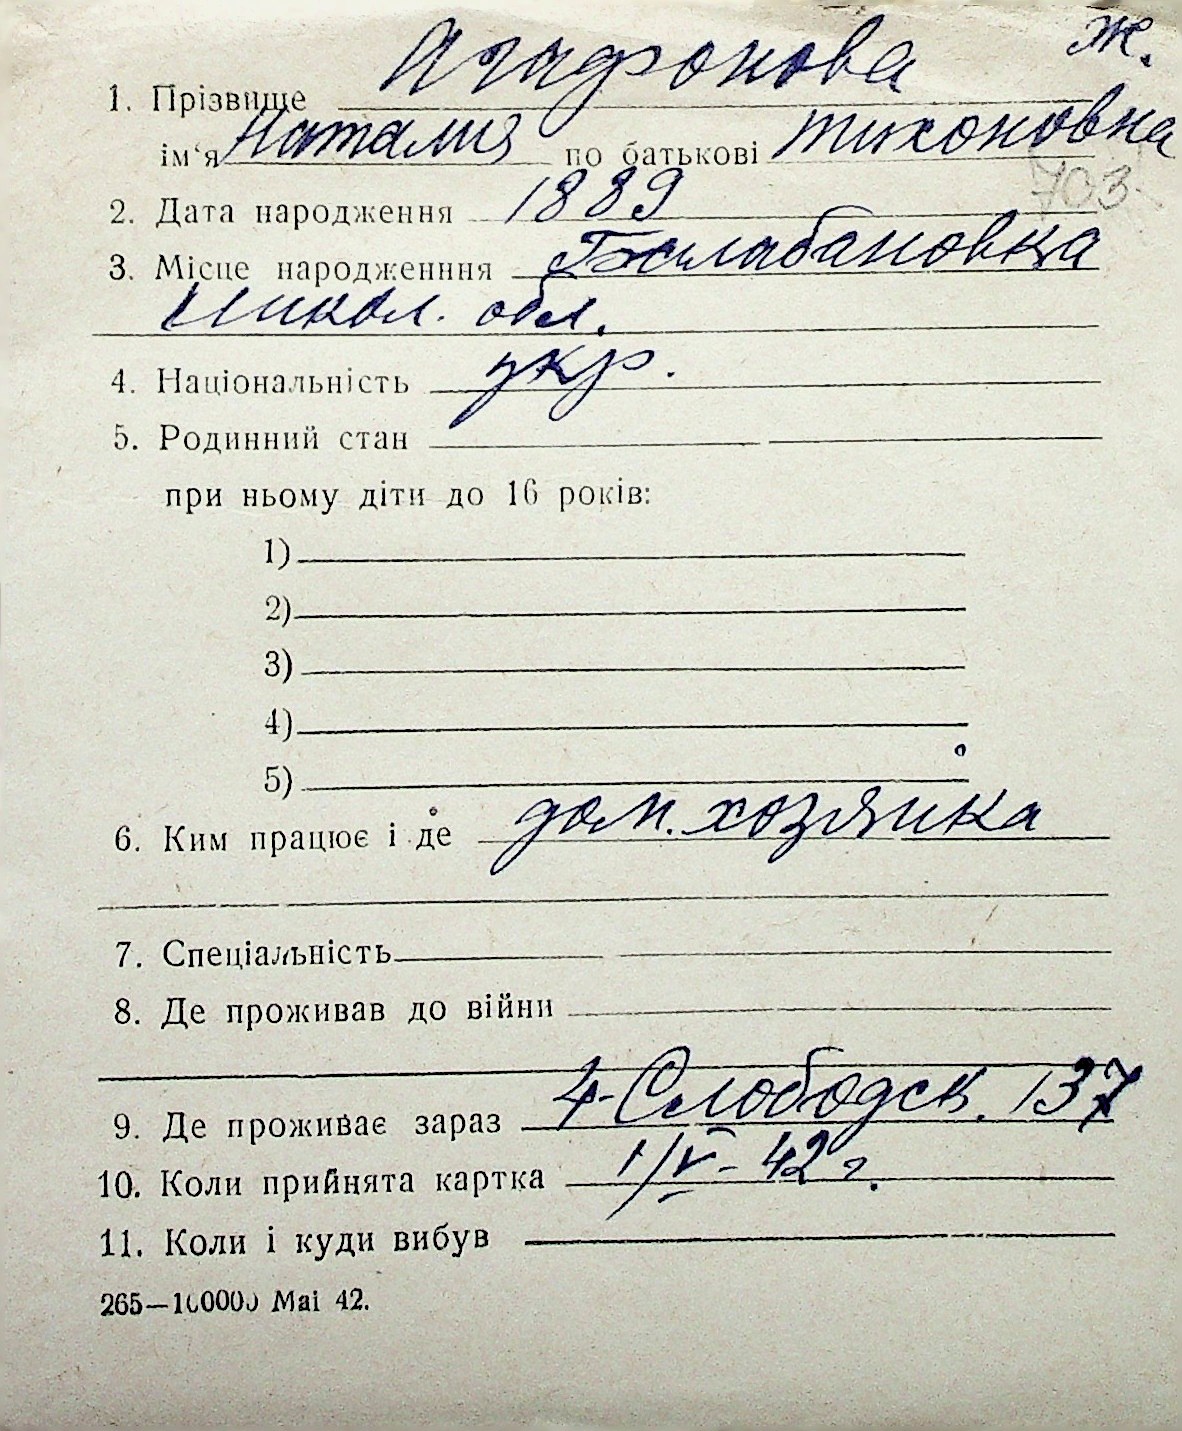 Агафонова ж.
1. Прізвище
ім‘я Наталия по батькові Тихоновна
703
2. Дата народження 1889
3. Місце народженння Балабановка
Никол. обл.
4. Національність укр.
5. Родинний стан
при ньому діти до 16 років:
1)
2)
3)
4)
5)
6. Ким працює і де дом. хозяйка
7. Спеціальність
8. Де проживав до війни
9. Де проживає зараз 4-Слободск. 137
10. Коли прийнята картка 1/V-42 г.
11. Коли і куди вибув
265—100000 Mai 42.